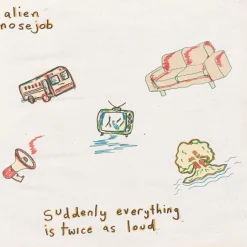 alien
nosejob
Suddenly everything
is twice as loud